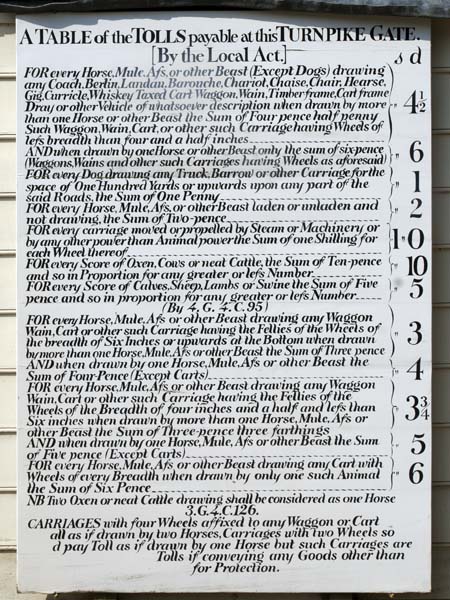 A TABLE of the TOLLS payable at this TURNPIKE GATE.
[By the Local Act.] s d
FOR every Horse, Mule, Afs, or other Beast (Except Dogs) drawing
any Coach, Berlin, Landau, Barouche, Chariot, Chaise, Chair, Hearse,
Gig, Curricle, Whiskey, Taxed Cart, Waggon, Wain, Timber frame, Cart frame
Dray or other Vehicle of whatsoever description when drawn by more
than one Horse or other Beast the Sum of Four pence half penny
Such Waggon, Wain, Cart, or other such Carriage having Wheels of
lefs breadth than four and a half inches " 4½
AND when drawn by one Horse or other Beast only the sum of sixpence
(Waggons, Wains and other such Carriages having Wheels as aforesaid) " 6
FOR every Dog drawing any Truck, Barrow or other Carriage for the
space of One Hundred Yards or upwards upon any part of the
said Roads, the Sum of One Penny " 1
FOR every Horse, Mule, Afs, or other Beast laden or unladen and
not drawing, the Sum of Two-pence " 2
FOR every carriage moved or propelled by Steam or Machinery or
by any other power than Animal power the Sum of one Shilling for
each Wheel thereof 1 " 0
FOR every Score of Oxen, Cows or neat Cattle, the Sum of Ten-pence
and so in Proportion for any greater or lefs Number " 10
FOR every Score of Calves, Sheep, Lambs or Swine the Sum of Five
pence and so in proportion for any greater or lefs Number " 5
(By 4, G. 4. C. 95)
FOR every Horse, Mule, Afs or other Beast drawing any Waggon
Wain, Cart or other such Carriage having the Fellies of the Wheels of
the breadth of Six Inches or upwards at the Bottom when drawn
by more than one Horse, Mule, Afs or other Beast the Sum of Three pence " 3
AND when drawn by one Horse, Mule, Afs or other Beast the
Sum of Four-Pence (Except Carts) " 4
FOR every Horse, Mule, Afs or other Beast drawing any Waggon
Wain, Cart or other such Carriage having the Fellies of the
Wheels of the Breadth of four inches and a half and lefs than
Six inches when drawn by more than one Horse, Mule, Afs or
other Beast the Sum of Three-pence three farthings " 3¾
AND when drawn by one Horse, Mule, Afs or other Beast the Sum
of Five pence (Except Carts) " 5
FOR every Horse, Mule, Afs or other Beast drawing any Cart with
Wheels of every Breadth when drawn by only one such Animal
the Sum of Six Pence " 6
NB Two Oxen or neat Cattle drawing shall be considered as one Horse
3. G. 4. C. 126.
CARRIAGES with four Wheels affixed to any Waggon or Cart
all as if drawn by two Horses, Carriages with two Wheels so
d pay Toll as if drawn by one Horse but such Carriages are
Tolls if conveying any Goods other than
for Protection.